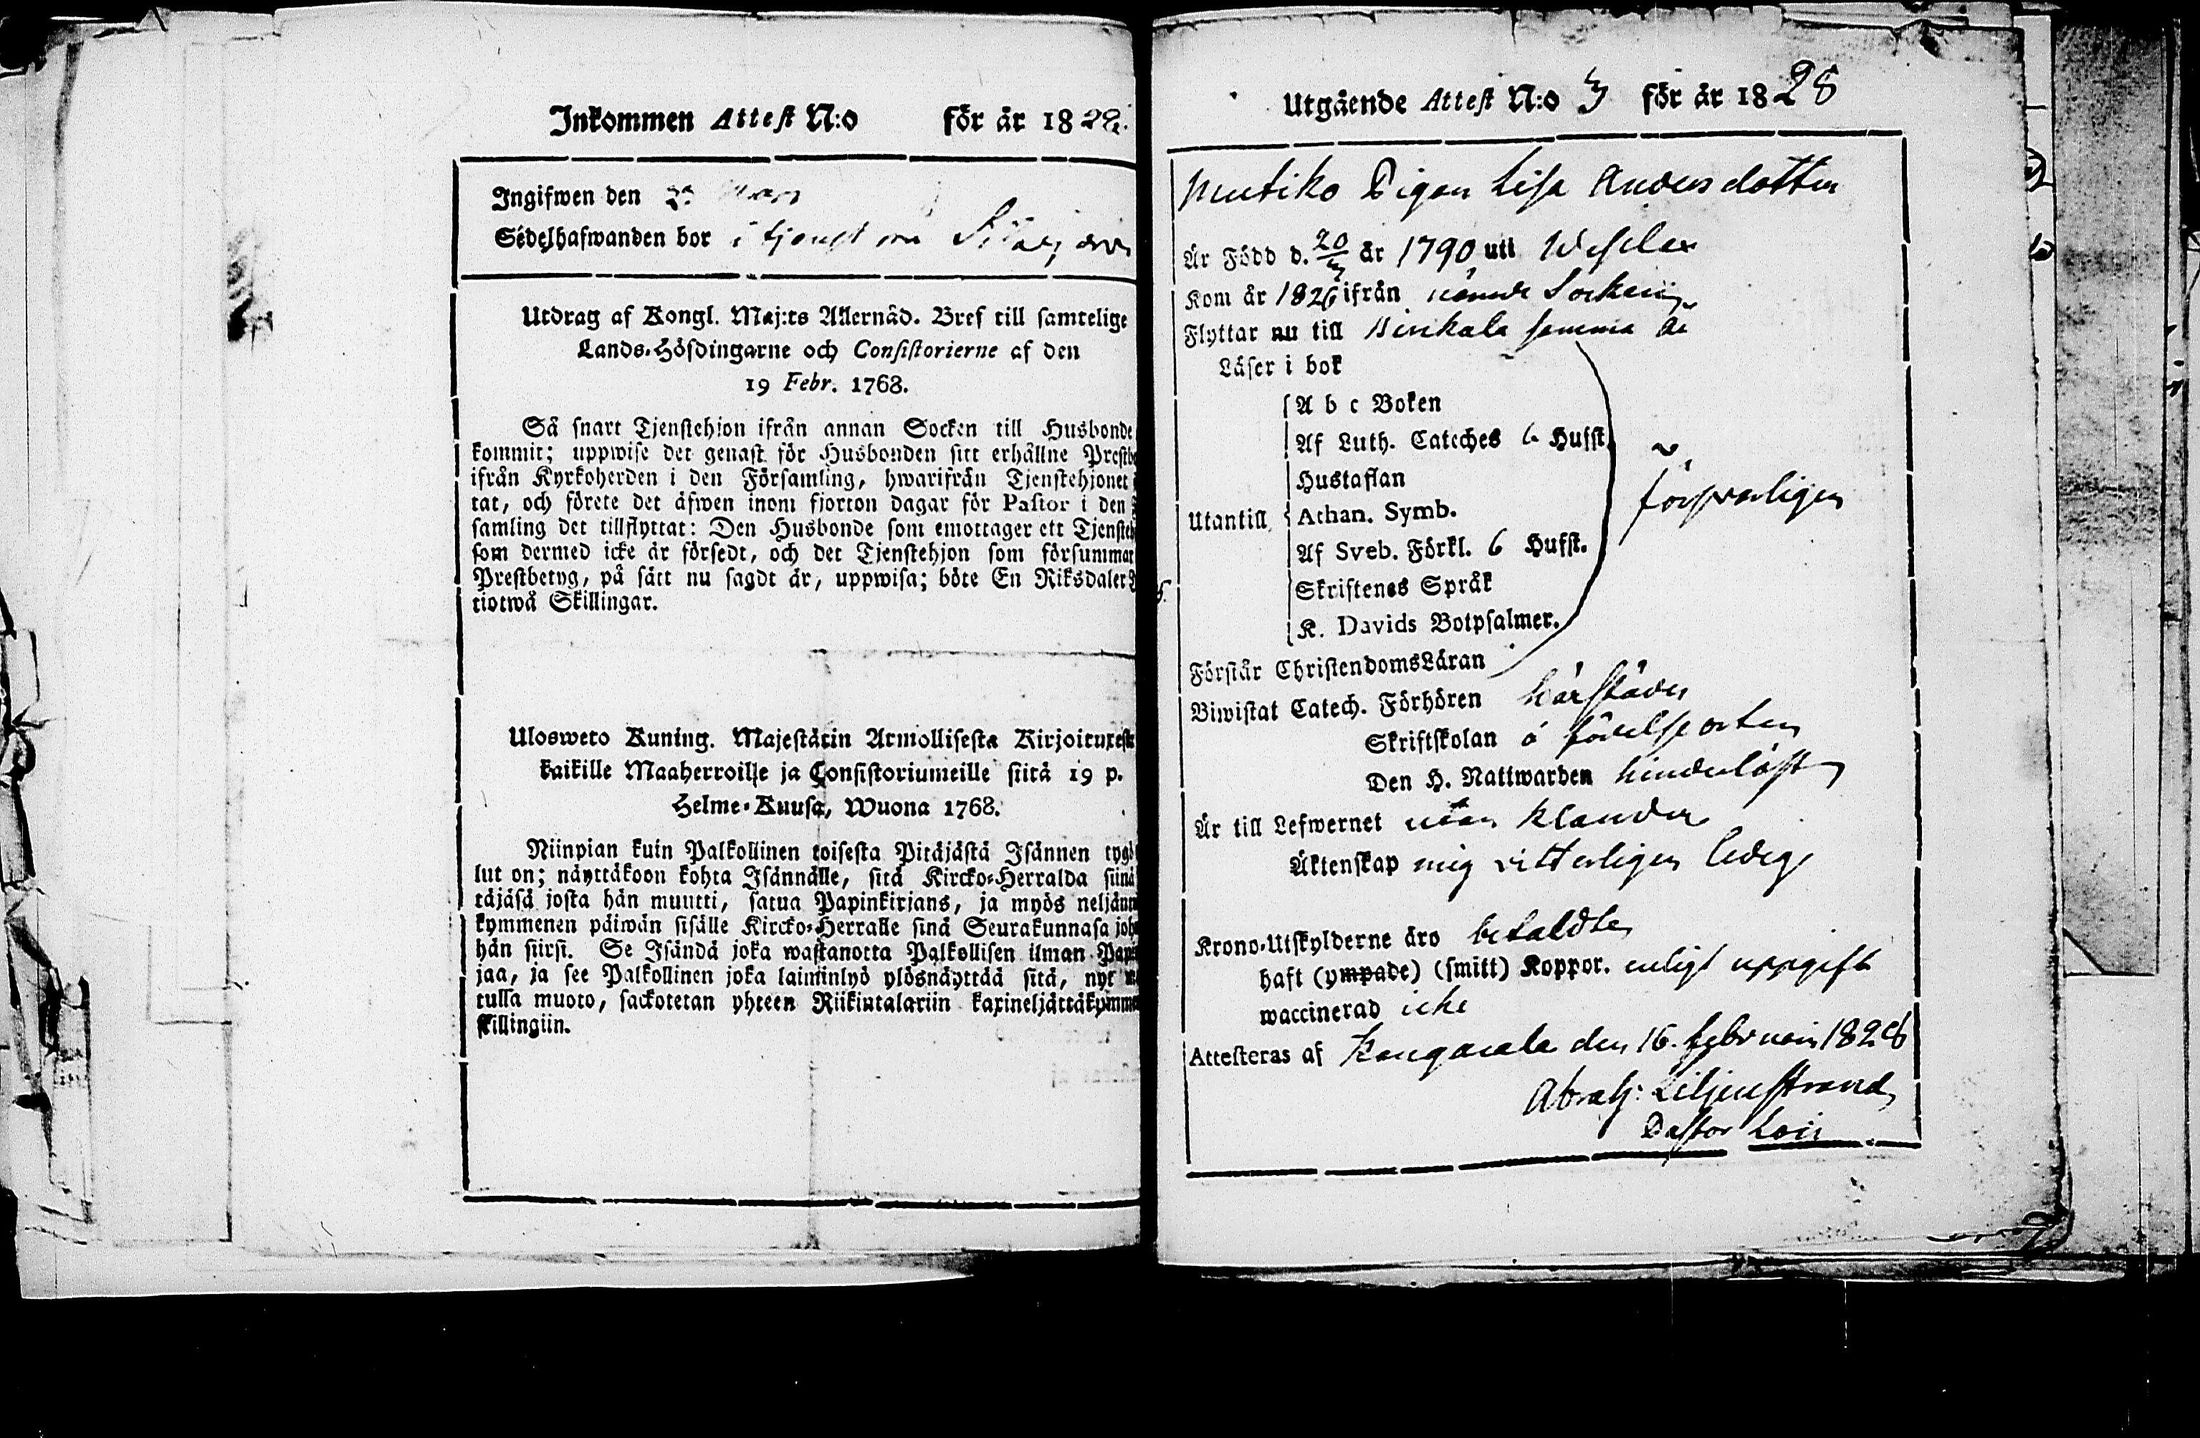 Inkommen Attest N:o för år 1828.
Ingifwen den 2 Mars
Sedelhafwanden bor i tjenst
Utdrag af Kongl. Maj:ts Allernåd. Bref till samtelige
Lands-Höfdingarne och Consistorierne af den
19 Febr. 1768.
Så snart Tjenstehjon ifrån annan Socken till Husbonde
kommit; uppwise det genast för Husbonden sitt erhållne Prestbe
ifrån Kyrkoherden i den Församling, hwarifrån Tjenstehjonet
tat, och förete det äfwen inom fjorton dagar för Pastor i den
samling det tillflyttat: Den Husbonde som emottager ett Tjensteh
som dermed icke är försedt, och det Tjenstehjon som försummar
Prestbetyg, på sätt nu sagdt är, uppwisa; böte En Riksdaler
tiotwå Skillingar.
Ulosweto Kuning. Majestätin Armollisesta Kirjoituxesta
kaikille Maaherroille ja Consistoriumeille siitä 19 p.
Helme-Kuusa, Wuona 1768.
Niinpian kuin Palkollinen toisesta Pitäjästä Isännen tygö
lut on; näyttäkoon kohta Isännälle, sitä Kircko-Herralda siinä
täjäsä josta hän muutti, saatua Papinkirjans, ja myös neljän
kymmenen päiwän sisälle Kircko-Herralle sinä Seurakunnasa joh
hän siirsi. Se Isändä joka wastanotta Palkollisen ilman Papin
jaa, ja see Palkollinen joka laiminlyö ylösnäyttää sitä, nyt
tulla muoto, sackotetan yhteen Riikintalariin kaxineljättäkymmen
skillingiin.
Utgående Attest N:o 3 för år 1828
Mutiko Pigan Lisa Andersdotter
Är Född d. 20/3 år 1790 uti Wesilax
Kom år 1826 ifrån nämde Socken
Flyttar nu till Birkala samma år
Läser i bok
A b c Boken
Af Luth. Cateches 6 Hufst.
Hustaflan
Utantill, Athan. Symb.
Af Sveb. Förkl. 6 Hufst.
Skriftenes Språk
K. Davids Botpsalmer.
försvarligen
Förstår ChristendomsLäran
Biwistat Catech. Förhören härstädes
Skriftskolan å födelseorten
Den H. Nattwarden hinderlöst
Är till Lefwernet utan klander
Äktenskap mig vitterligen ledig
Krono-Utskylderne äro betaldte
haft (ympade) (smitt) Koppor. enligt uppgift
waccinerad icke
Attesteras af Kangasala den 16. februari 1828
Abrah: Liljenstrand
Pastor Loci